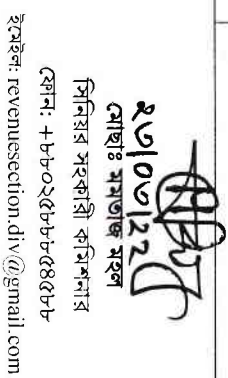 ২৩|০৩|২২
মোছাঃ মমতাজ মহল
সিনিয়র সহকারী কমিশনার
ফোন: +৮৮০২৫৮৮৮৫৪৫৮৮
ইমেইল: revenuesection.div@gmail.com